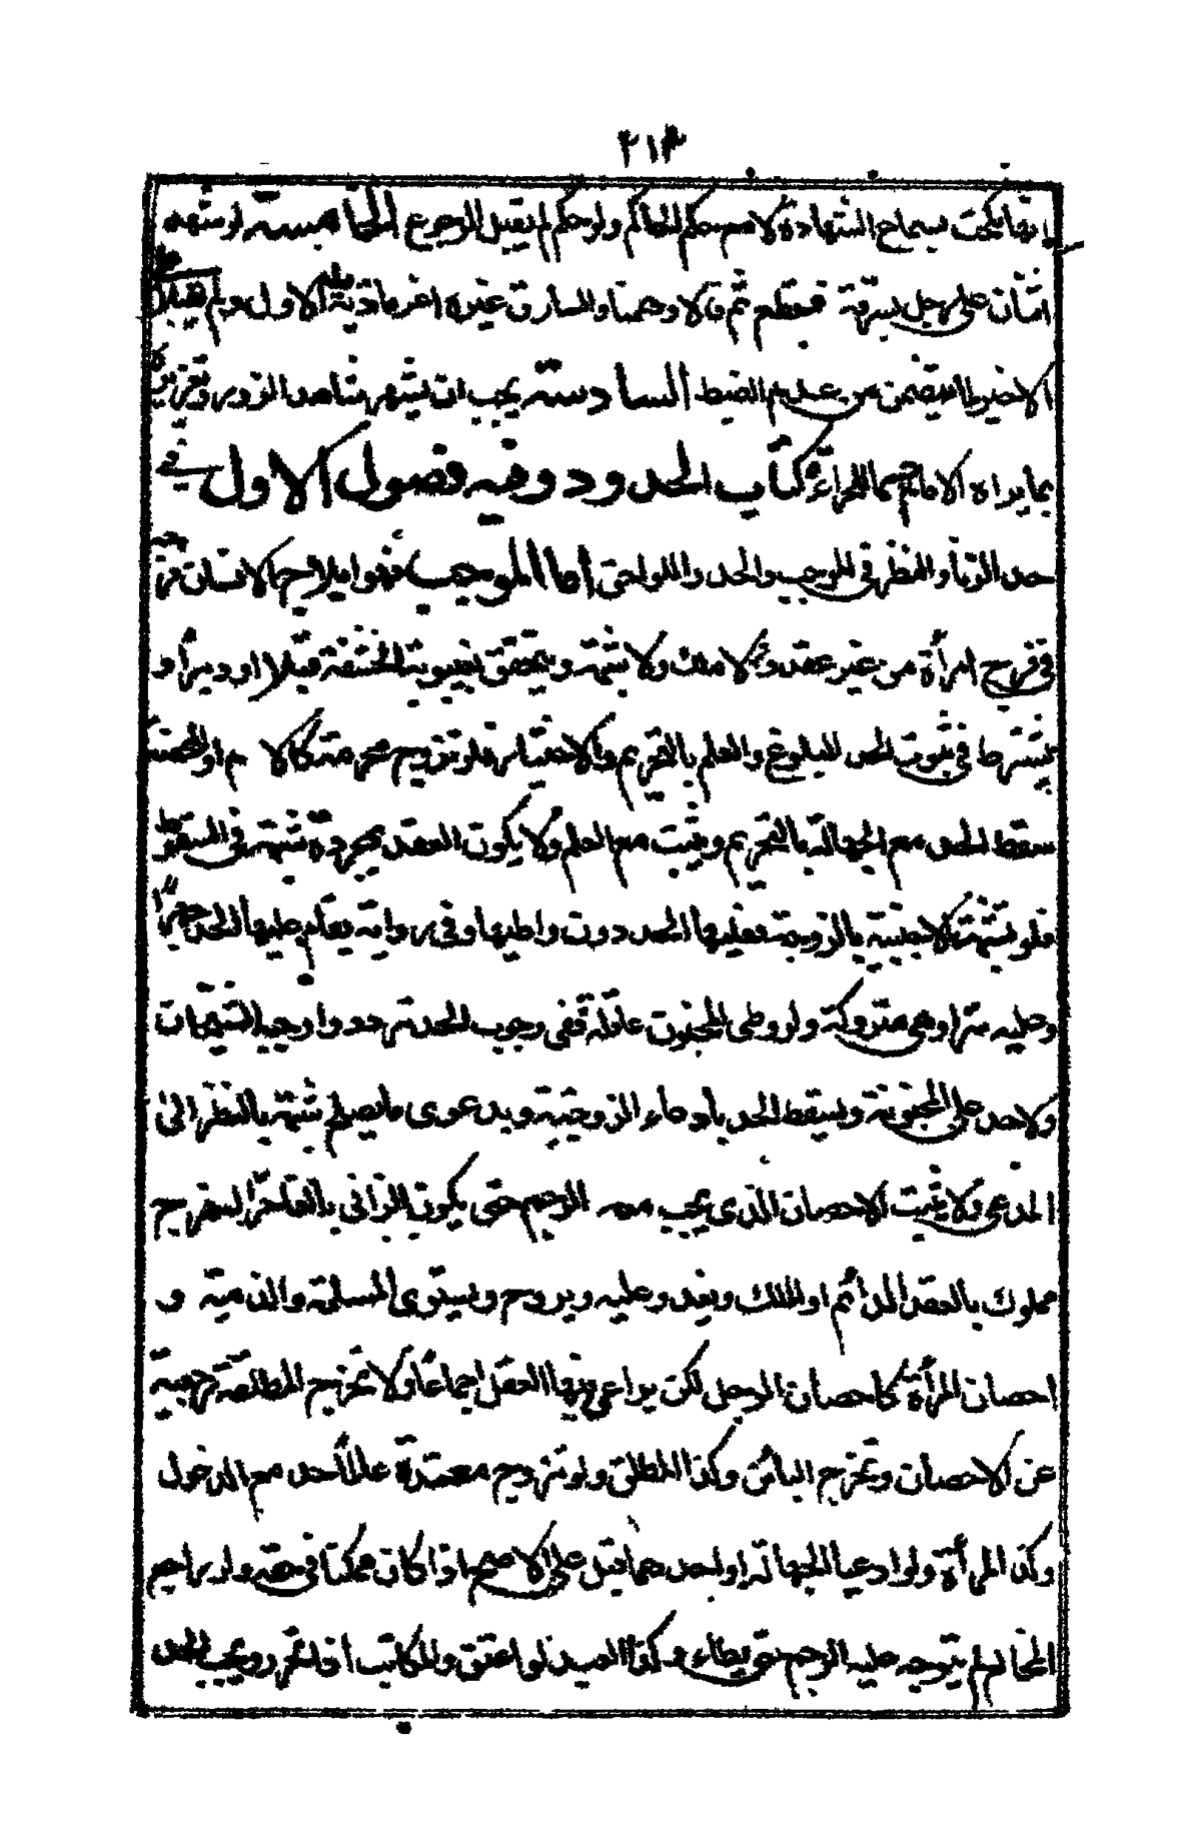 ٢١٣
اثنان على رجل بسرقة فقطع ثم قالا وهمنا والسارق غيره اغرما دية الاول ولم يقبلا
الاخير لما يتضمن من عدم الضبط السادسة يجب ان يشهر شاهد الزور وتعزيره
بما يراه الامام حسما للجرأة كتاب الحدود وفيه فصول الاول في
حد الزنا والنظر في الموجب والحد واللواحق اما الموجب فهو ايلاج الانسان فرجه
في فرج امرأة من غير عقد ولا ملك ولا شبهة ويتحقق بغيبوبة الحشفة قبلا او دبرا و
يشترط في ثبوت الحد البلوغ والعلم بالتحريم والاختيار فلو تزوج محرمة كالام او المحصنة
سقط الحد مع الجهالة بالتحريم ويثبت مع العلم ولا يكون العقد بمجرده شبهة في السقوط
فلو تشبهت الاجنبية بالزوجة فعليها الحد دون واطيها وفي رواية يقام عليها الحد جهرا
وعليه سرا وهي متروكة ولو وطى المجنون عاقلة ففي وجوب الحد تردد واوجبه الشيخان
ولا حد على المجنونة ويسقط الحد بادعاء الزوجية وبدعوى ما يصلح شبهة بالنظر الى
المدعى ولا يثبت الاحصان الذى يجب معه الرجم حتى يكون الزانى بالغا حرا له فرج
مملوك بالعقد الدائم او الملك ويغدو عليه ويروح ويستوى المسلمة والذمية و
احصان المرأة كاحصان الرجل لكن يراعى فيها العقل اجماعا ولا تخرج المطلقة رجعية
عن الاحصان وتخرج البائن وكذا المطلق ولو تزوج معتدة عالما حد مع الدخول
وكذا المرأة ولو ادعيا الجهالة او احدهما قبل على الاصح اذا كان ممكنا في حقه ولو راجع
المخالع لم يتوجه عليه الرجم حتى يطاء وكذا العبد لو اعتق والمكاتب اذا تحرر ويجب الحد